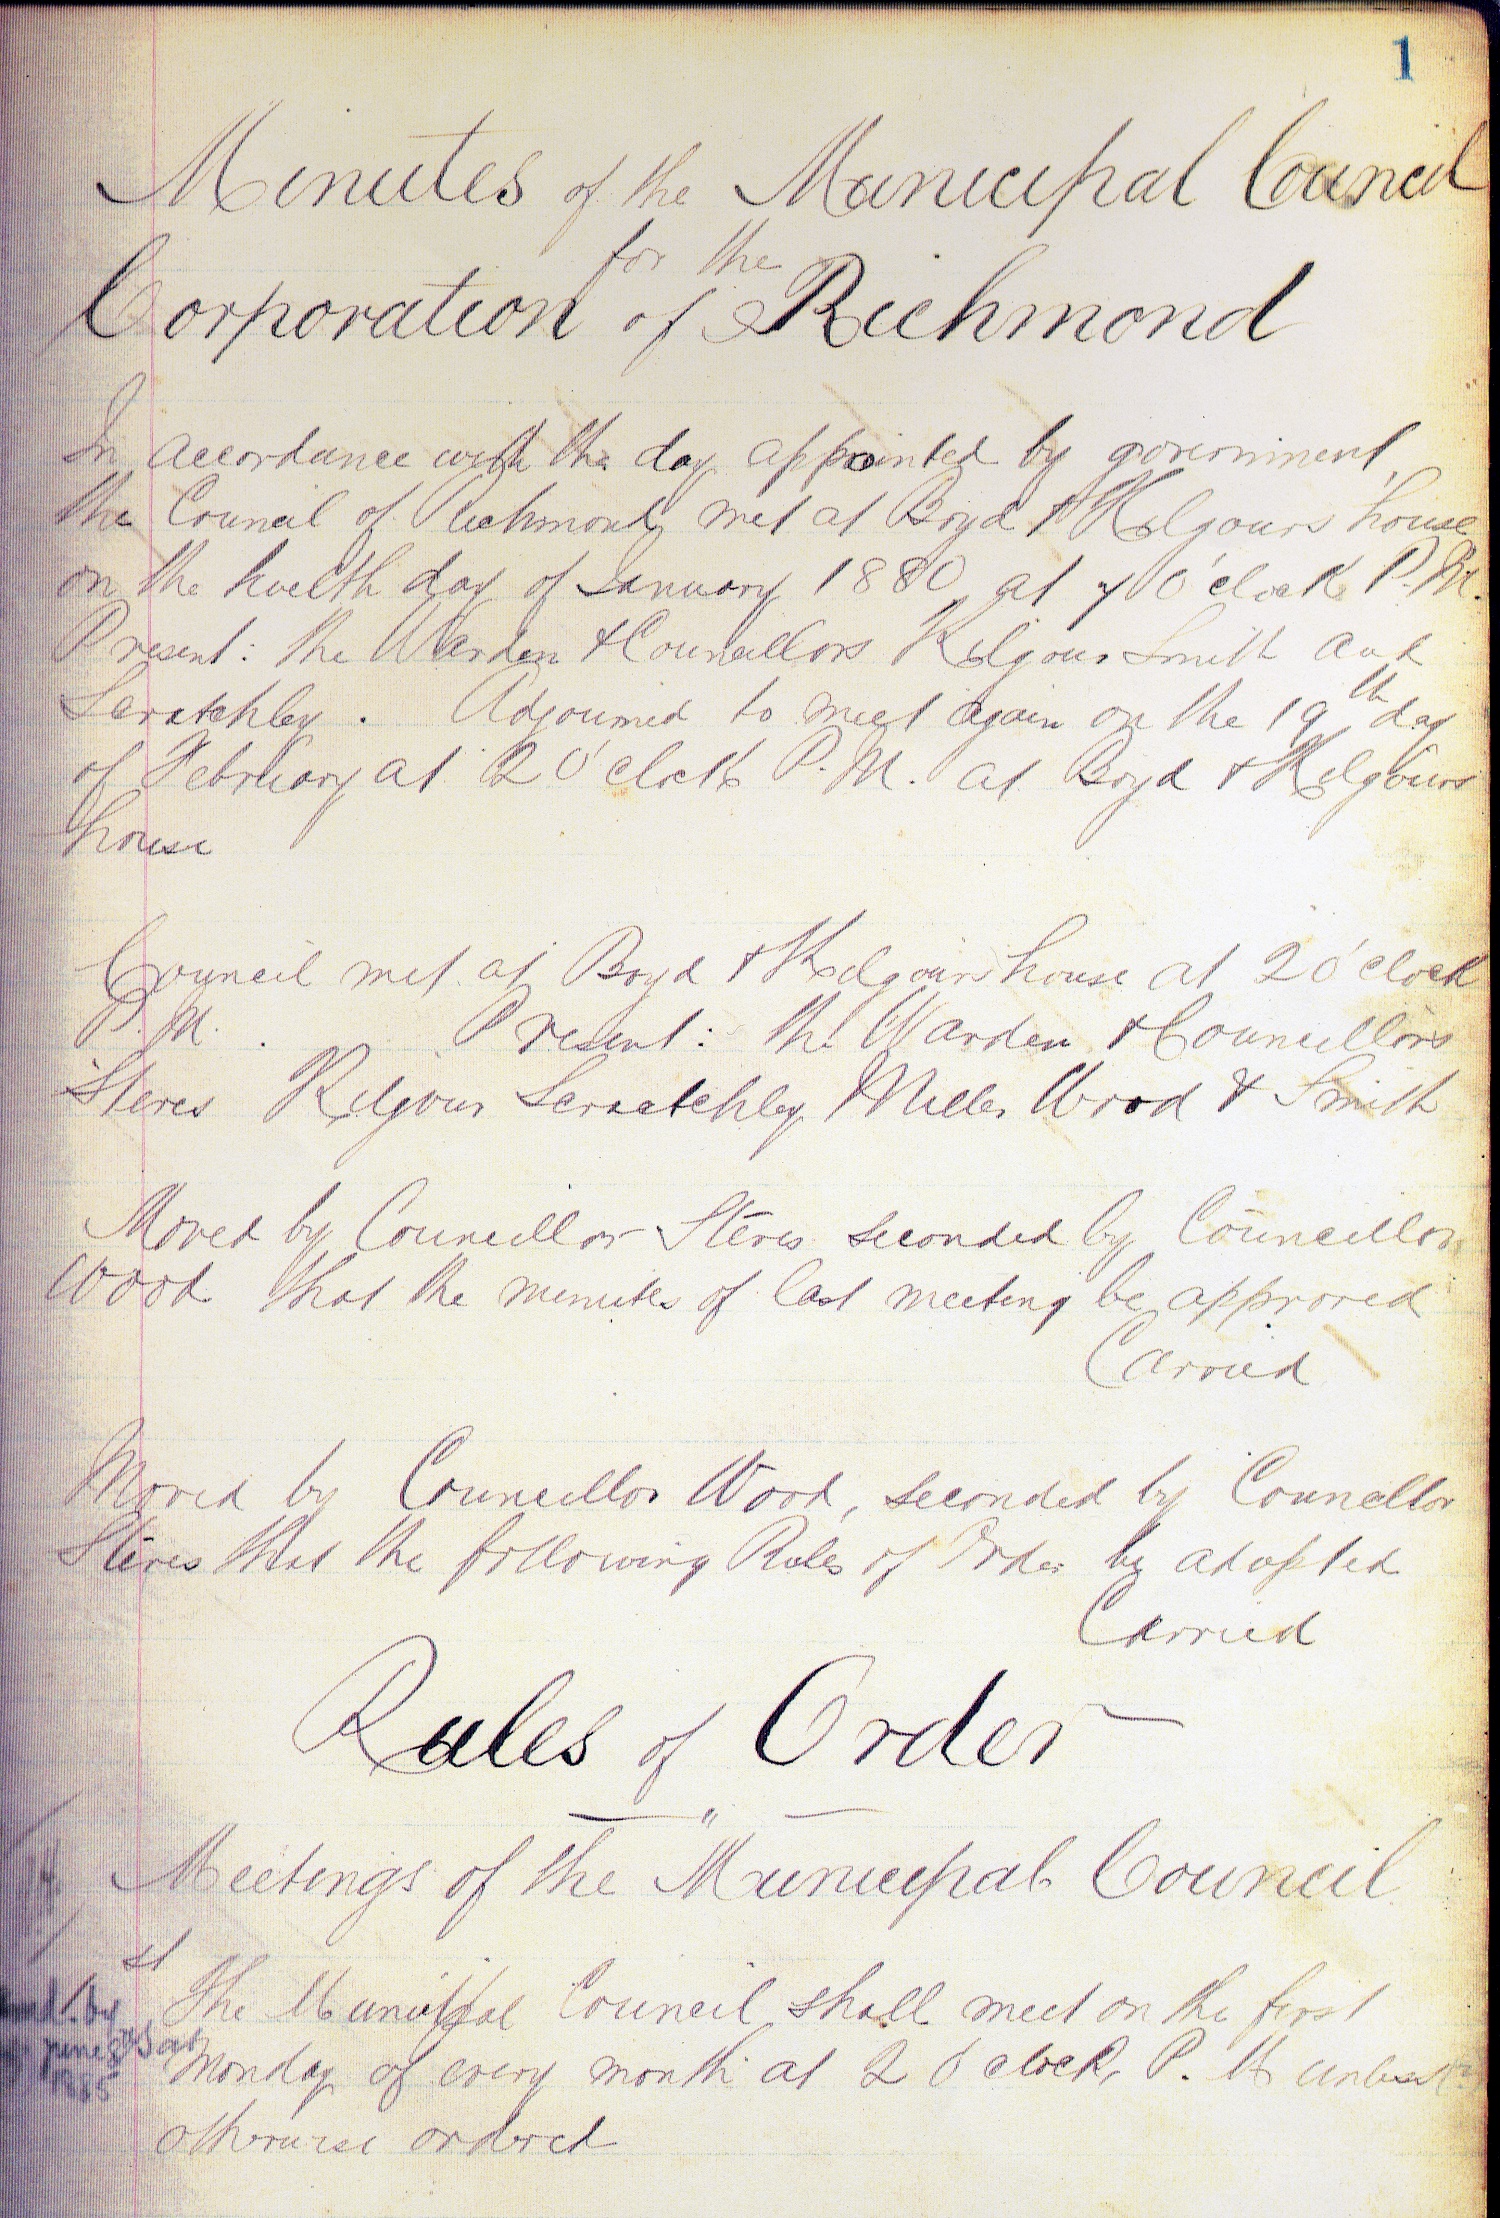 1
Minutes of the Municipal Council
for the
Corporation of Richmond
In accordance with the day appointed by government,
the Council of Richmond, met at Boyd & Kilgours house
on the twelth day of January 1880 at 7 O'clock P.M.
Present: the Warden & Councillors Kilgour Smith and
Scratchley. Adjourned to meet again on the 19th day
of February at 2 O'clock P.M. at Boyd & Kilgours
house
Council met at Boyd & Kilgours house at 2 O'clock
P.M. Present: the Warden & Councillors
Steves Kilgour Scratchley Miller Wood & Smith
Moved by Councillor Steves seconded by Councillor
Wood that the minutes of last meeting be approved
Carried
Moved by Councillor Wood, seconded by Councillor
Steves that the following Rules of Order be adopted
Carried
Rules of Order
Meetings of the Municipal Council
st
The Municipal Council shall meet on the first
Monday of every month at 2 O'clock, P.M unless
otherwise ordered
by
Sat